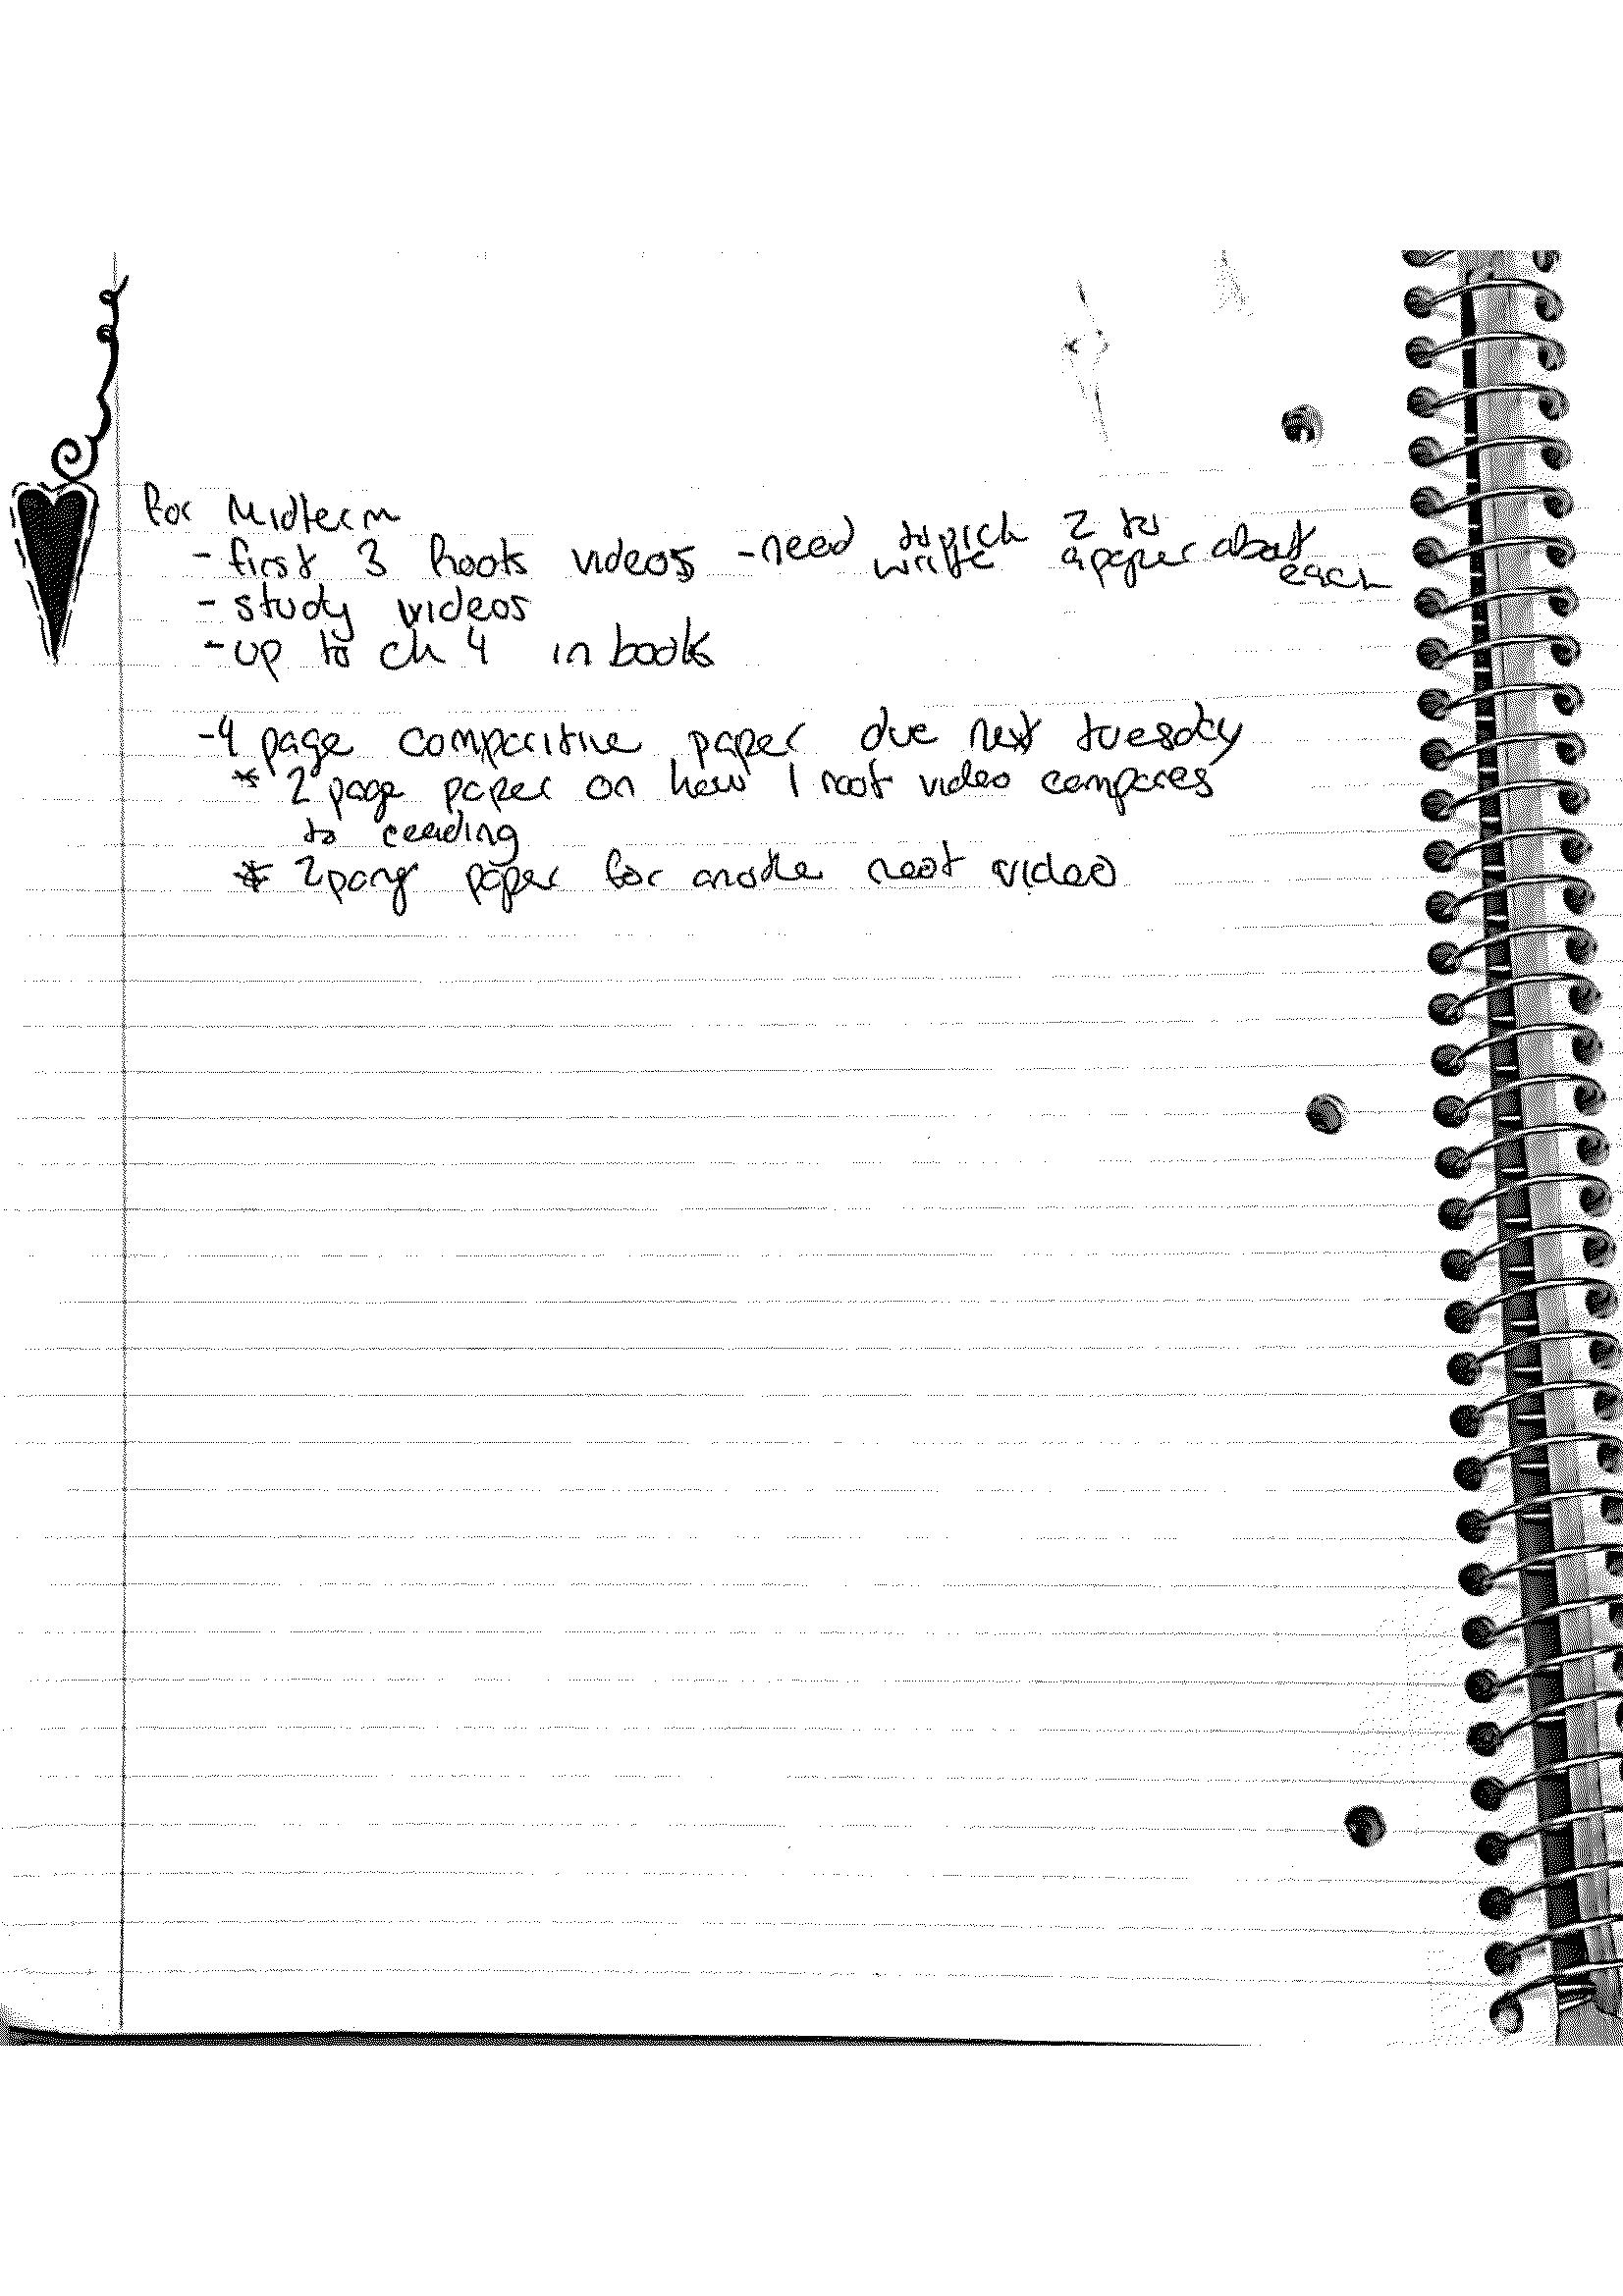 For Midterm
- first 3 Roots videos - need to pick 2 to
write a paper about
each
- study videos
- up to ch 4 in book
- 4 page comparitive paper due next tuesday
* 2 page paper on how 1 root video compares
to reading
* 2 pang paper for anothe root video